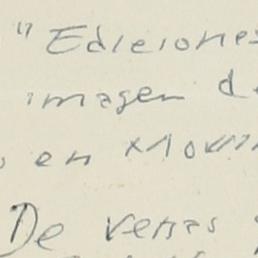 "Ediciones
imagen d
en Movim
De venas